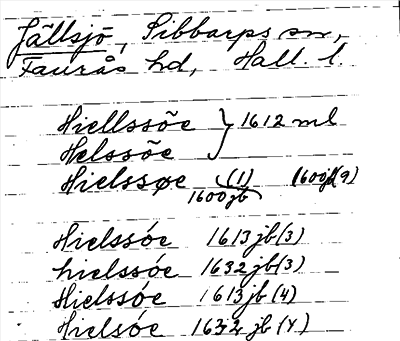 Jällsjö, Sibbarps sn,
Faurås hd, Hall. l.
Hiellssöe } 1612 ml
Helssöe
Hielssøe (1) 1600jb(9)
1600jb
Hielssóe 1613 jb(3)
hielssóe 1632 jb(3)
Hielssóe 1613 jb (4)
Hielsóe 1632 jb (4)